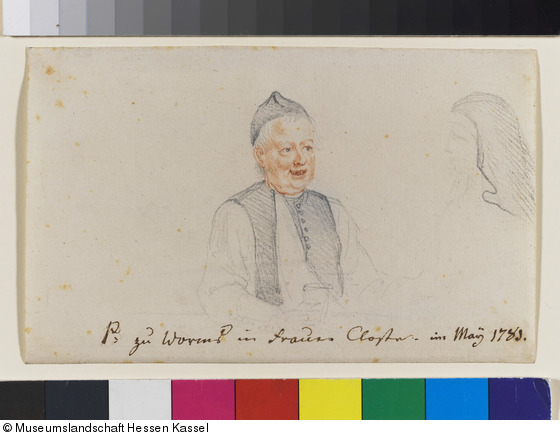 P: zu Worms in Frauen Closter. im Maÿ 1783.
© Museumslandschaft Hessen Kassel